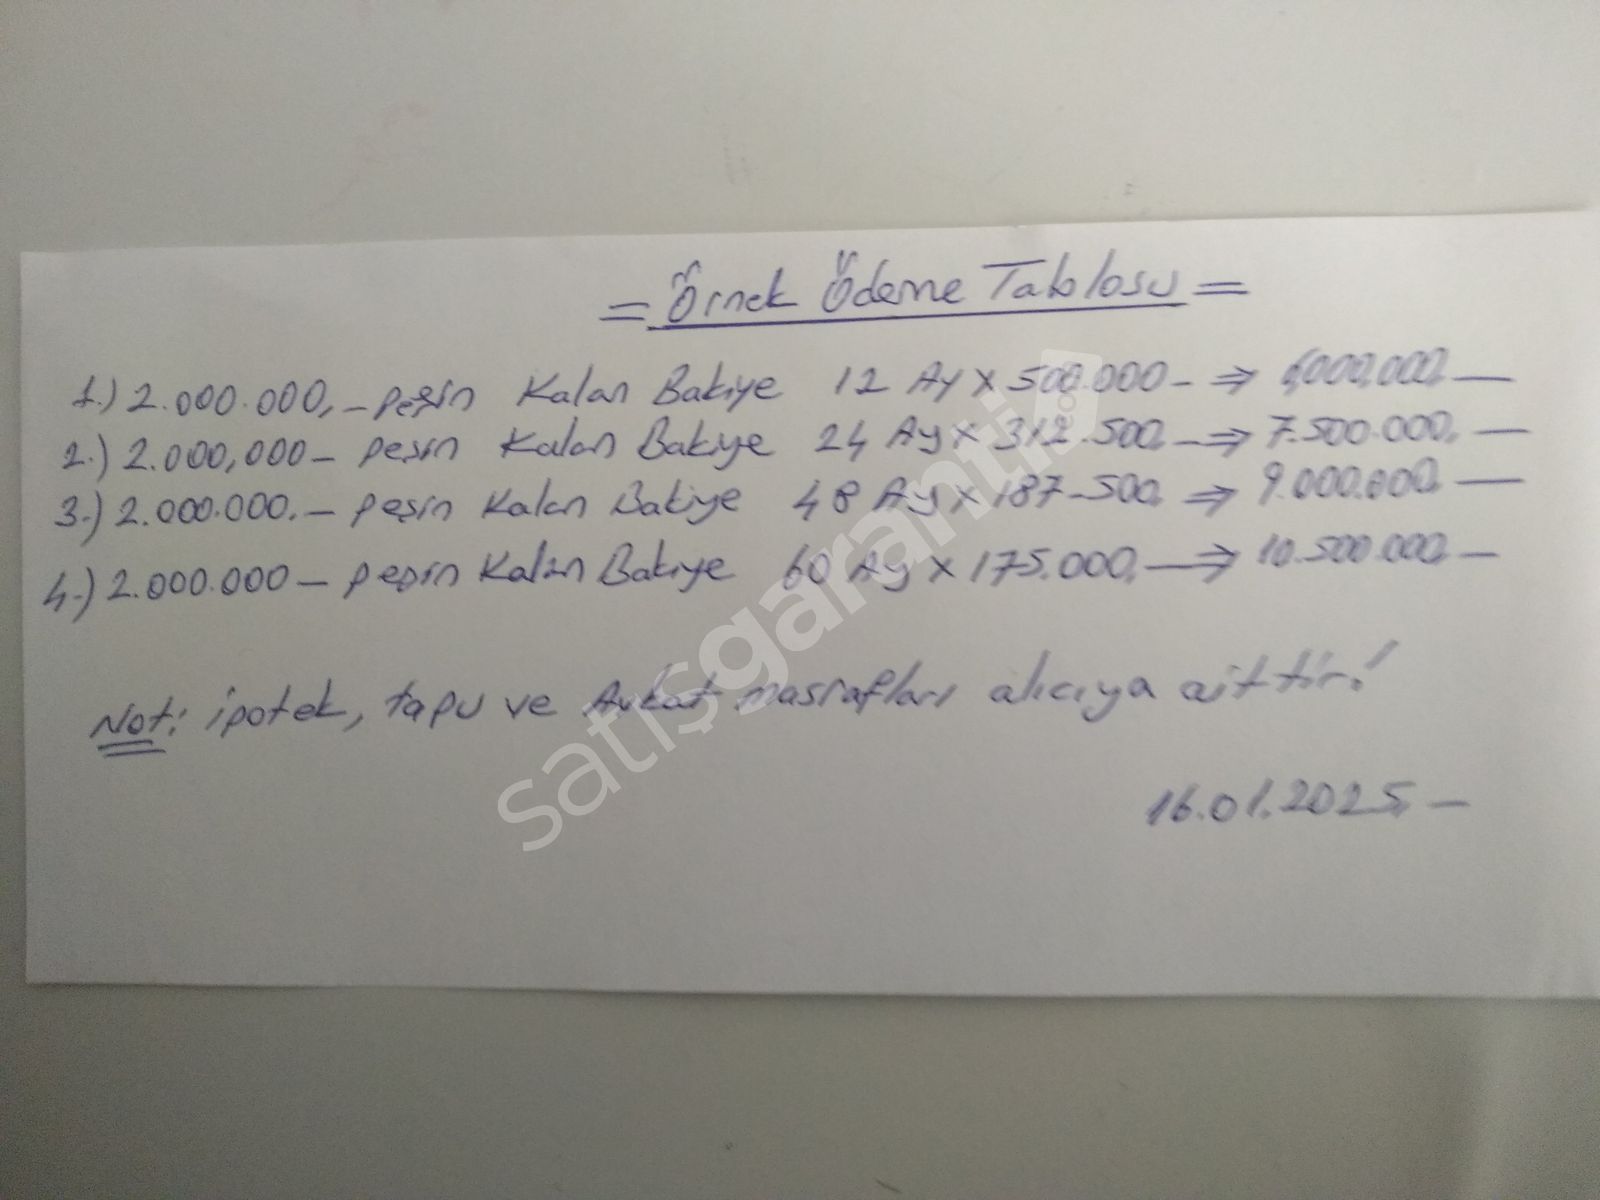 = Örnek Ödeme Tablosu =
1.) 2.000.000,- peşin Kalan Bakiye 12 Ay x 500.000- ⇒ 6,000,000,—
2.) 2.000,000- peşin Kalan Bakiye 24 Ay x 312.500. ⇒ 7.500.000, —
3.) 2.000.000.- peşin Kalan Bakiye 48 Ay x 187.500, ⇒ 9.000.000 —
4.) 2.000.000- peşin Kalan Bakiye 60 Ay x 175.000, ⇒ 10.500.000 —
Not: ipotek, tapu ve Avkat masrafları alıcıya aittir!
16.01.2025, —
satışgaranti